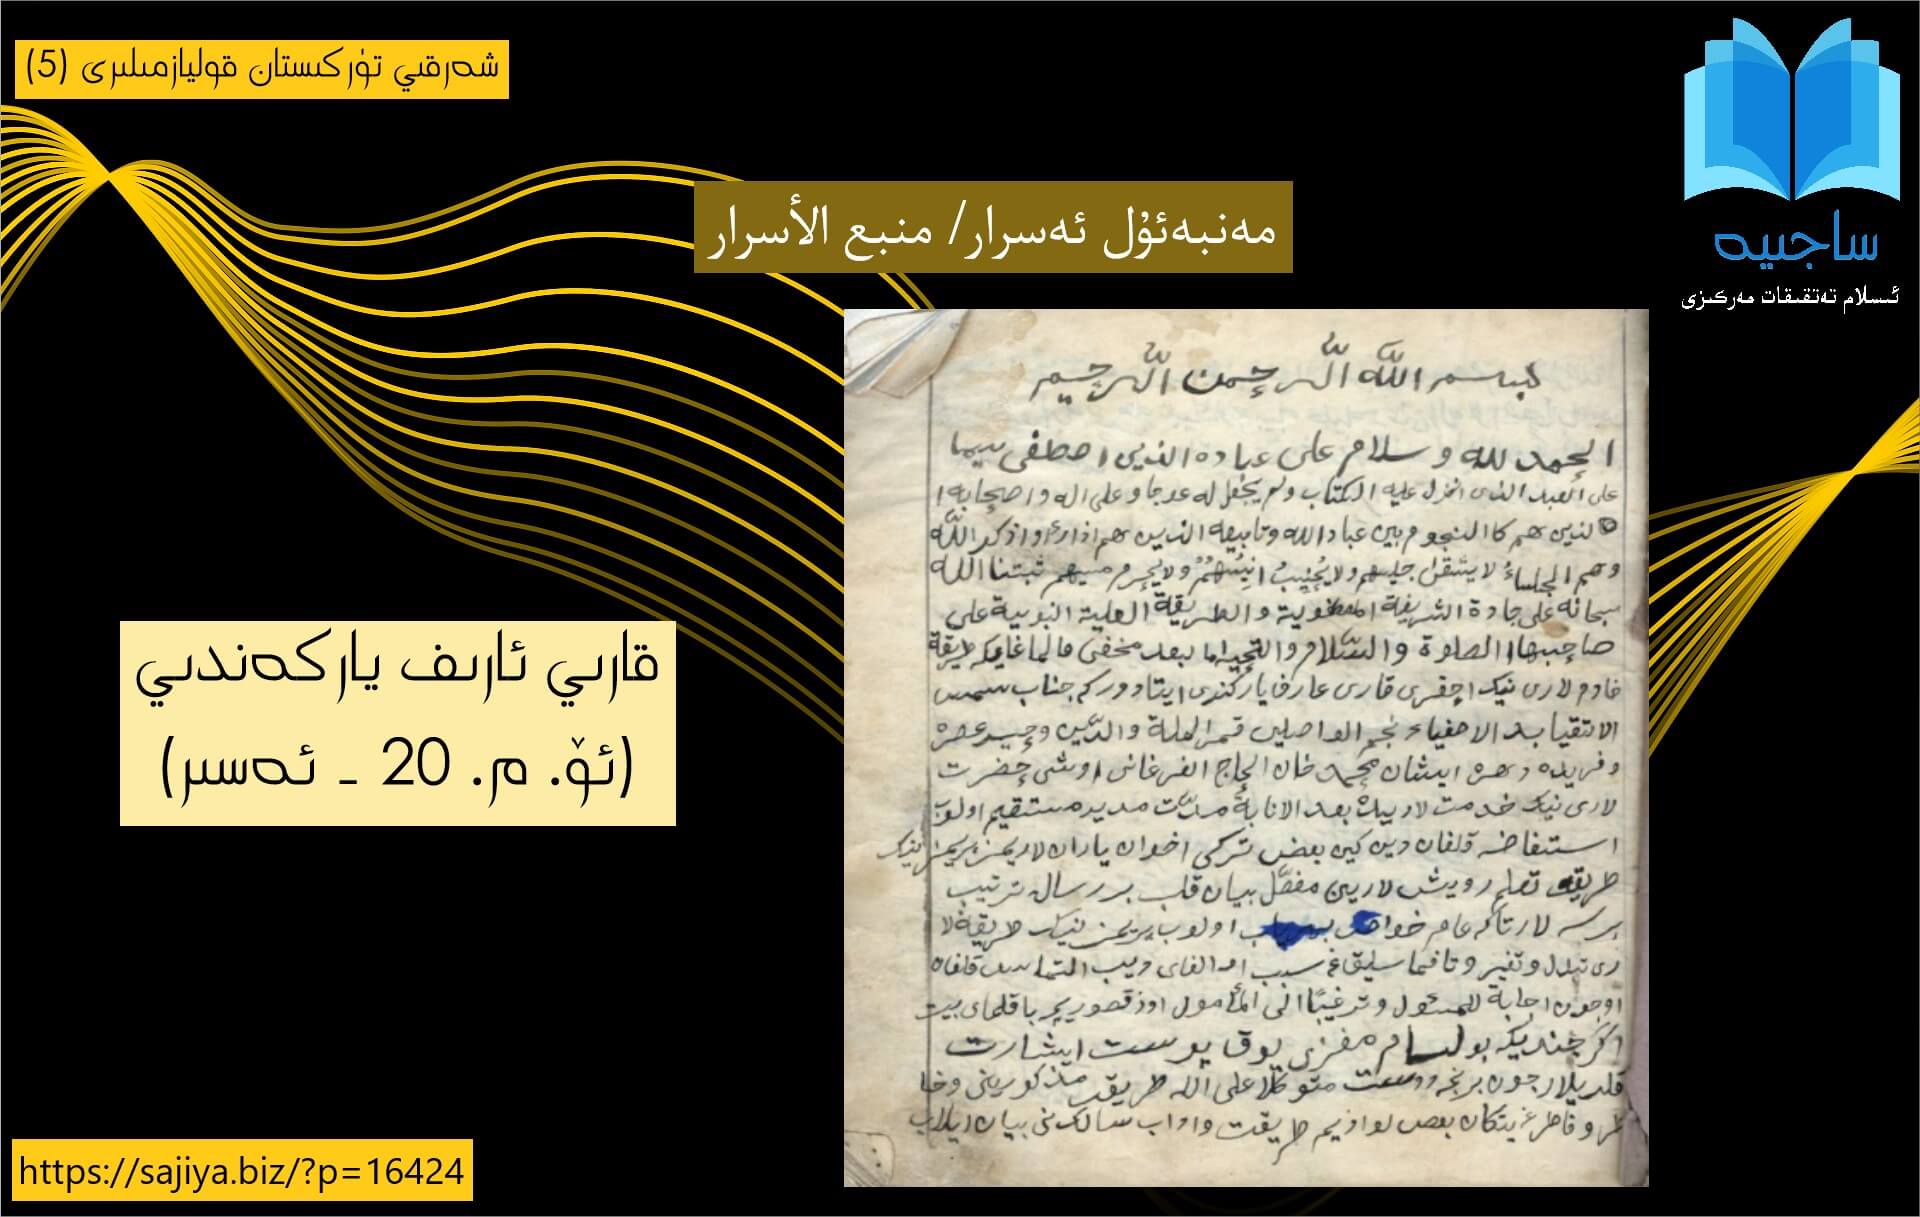 شەرقىي تۈركىستان قوليازمىلىرى (5)
ساجىيە
ئىسلام تەتقىقات مەركىزى
مەنبەئۇل ئەسرار/ منبع الأسرار
قارىي ئارىف ياركەندىي
(ئۆ. م. 20 ـ ئەسىر)
https://sajiya.biz/?p=16424
بسم الله الرحمن الرحيم
الحمد لله و سلام على عباده الذين اصطفى سيما
على العبد الذى انزل عليه الكتاب ولم يجعل له عوجا و على اله و اصحابه ا
لذين هم كا النجوم بين عباد الله و تابعيه الذين هم اذا رءوا ذكر الله
و هم الجلساء لا يشقى جليسهم ولا يخيب انيسهم ولا يحرم ثبتنا الله
سبحانه على جادة الشريفة المصطفوية و الطريقة العلية النبوية على
صاحبها الصلوة و السلام و التحية اما بعد مخفى قالماغايكه
خادم لارى نينك احقرى قارى عارف ياركندى ايتادوركه جناب شمس
الاتقيا بدر الاصفياء نجم الواصلين قمر الملة و الدين وحيد عصره
و فريده دهره ايشان محمد خان الحاج الفرغانى اوشى حضرت
لارى نينك خدمت لاريده بعد الانابة مدت مديد مستقيم اولوب
استفاضه قلغان دين كين بعض تركى اخوان ياران لاريمز پريمز نينك
طريقه تعليم رويش لارين مفصل بيان قلب بر رساله ترتيب
برسه لار تاكه عام خواص اولوب پريمز نينك طريقه لا
رى تبدل و تغير و تافماسليق غه سبب الفاى ديب التماس قلغان
اوچون اجابة للمسئول و ترغيبا الى المأمول اوز قصوريم باقلماى بيت
اكر چنديكه بولسام مغزى يوق پوست ايشارت
قلديلار چون برنچه دوست متوكلا على الله طريقه مذكورينى و خا
بعض لوازيم طريقت و اداب سالك نى بيان ايلاب